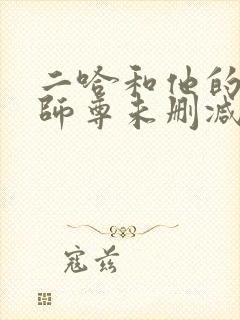 二哈和他的
师尊未删减
寇兹